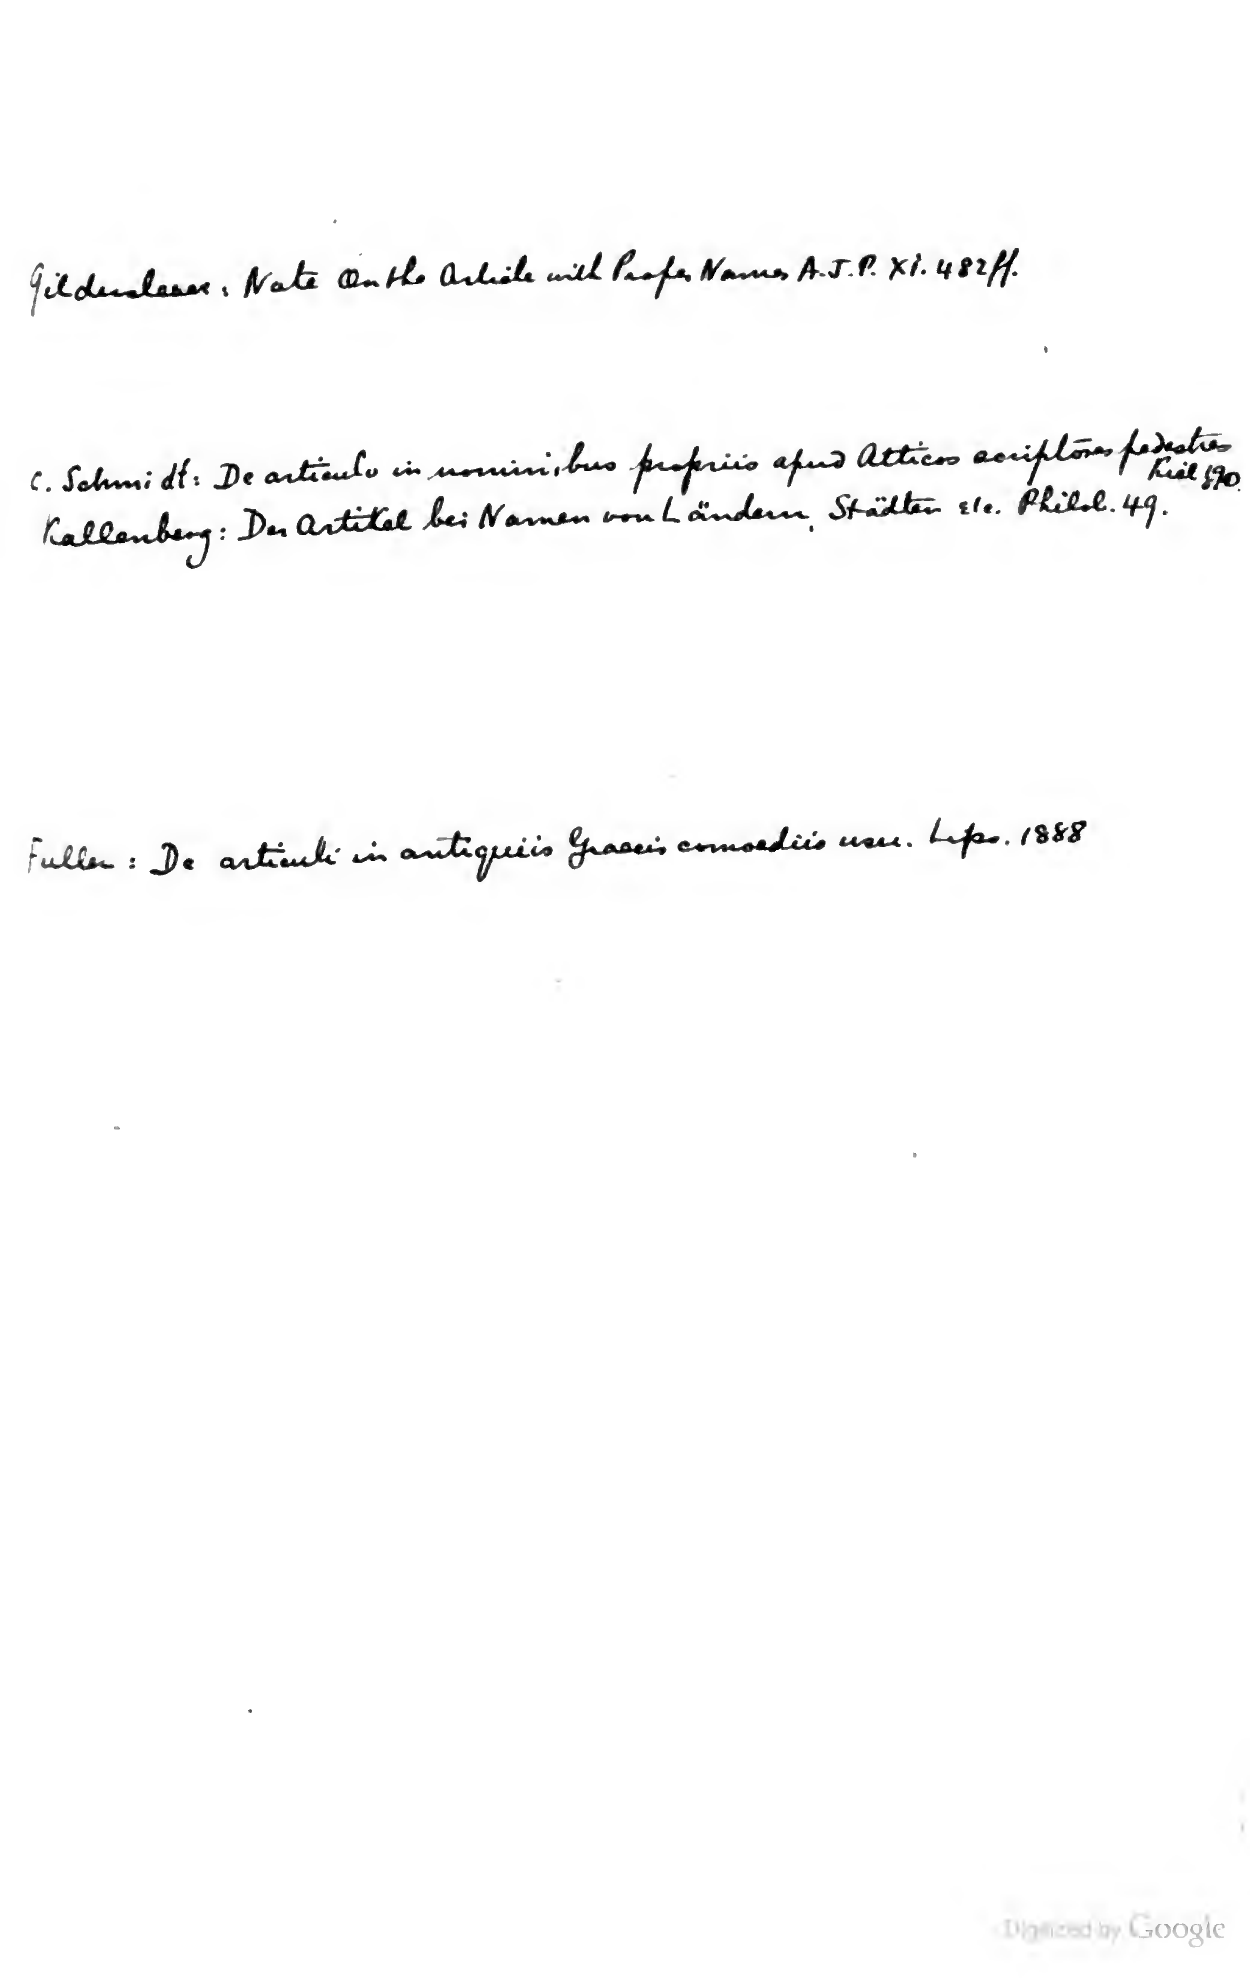 Gildersleeve: Note On the Article with Proper Names A.J.P. XI. 482ff.
C. Schmidt: De articulo in nominibus propriis apud Atticos scriptores pedestres
Kiel 890.
Kallenberg: Der Artikel bei Namen von Ländern, Städten etc. Philol. 49.
Fuller: De articuli in antiquiis Graecis comoediis usu. Lips. 1888
Digitized by Google